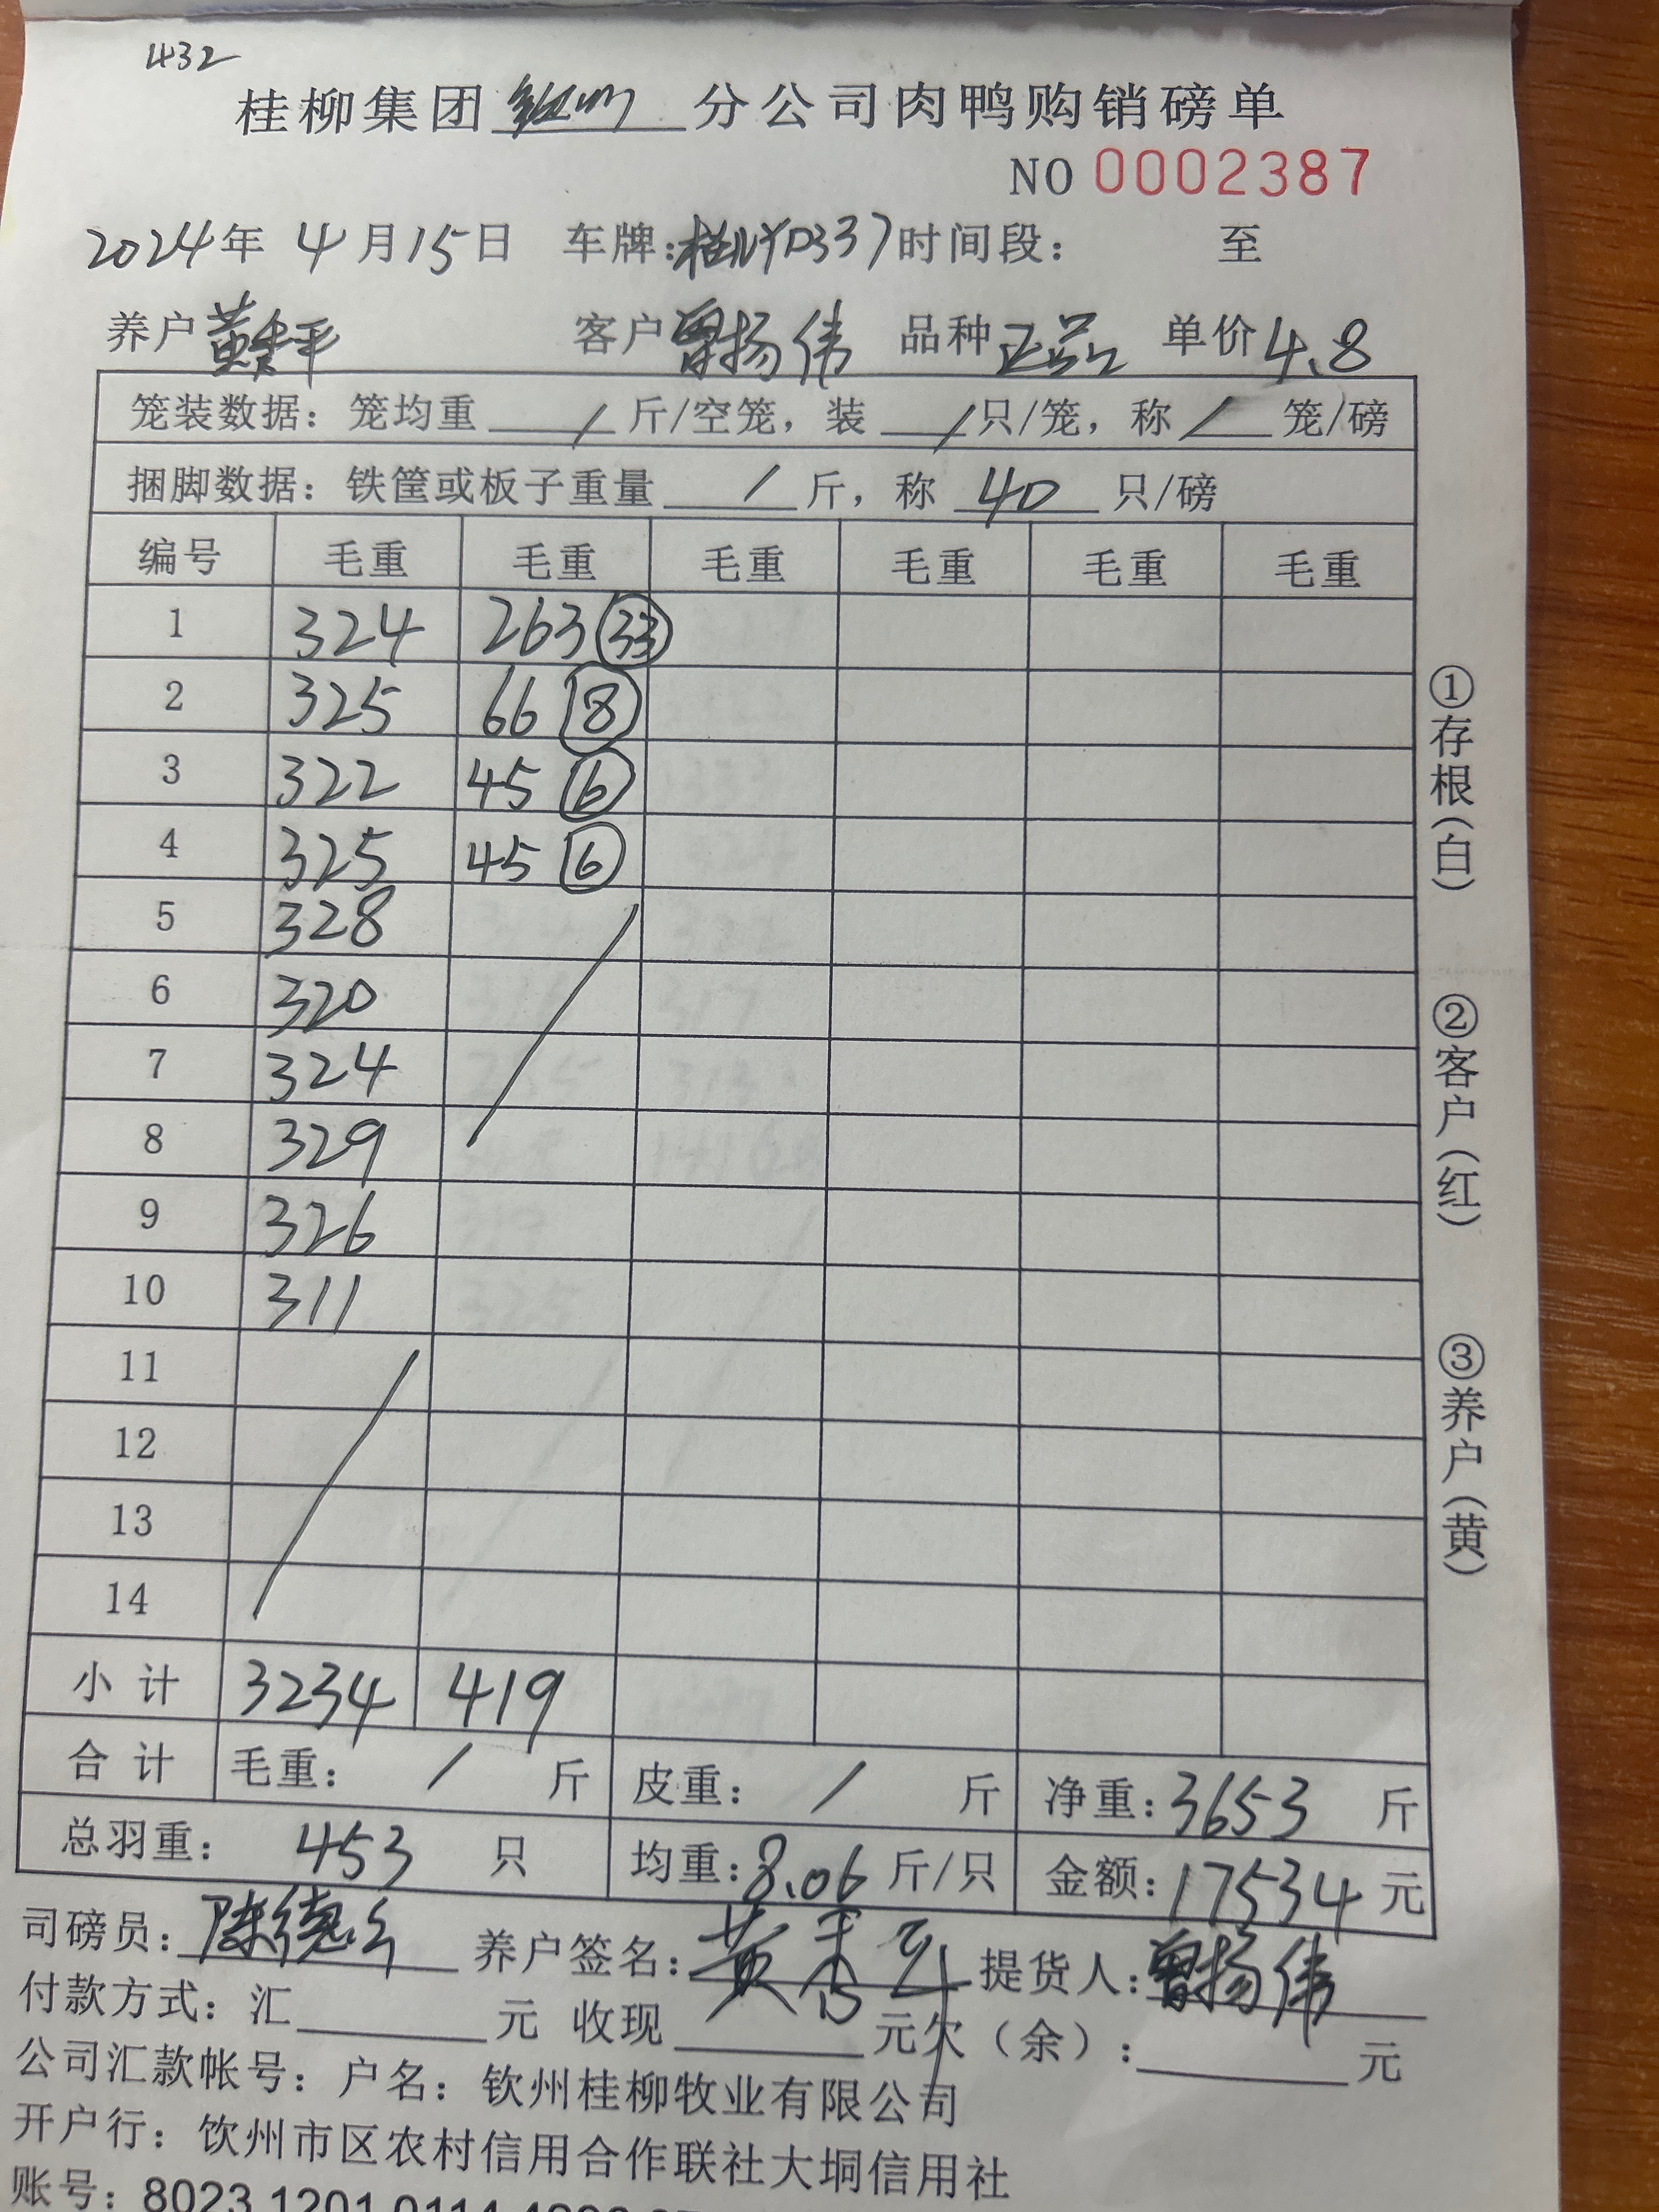 432
桂柳集团 钦州 分公司肉鸭购销磅单
NO 0002387
2024年 4月15日 车牌:桂NYD337 时间段: 至
养户 黄 平 客户 曾扬伟 品种 正品 单价 4.8
笼装数据: 笼均重 / 斤/空笼, 装 / 只/笼, 称 / 笼/磅
捆脚数据: 铁筐或板子重量 / 斤, 称 40 只/磅
编号 毛重 毛重 毛重 毛重 毛重 毛重
1 324 263 (33)
2 325 66 (8)
3 322 45 (6)
4 325 45 (6)
5 328
6 320
7 324
8 329
9 326
10 311
11
12
13
14
小计 3234 419
合计 毛重: / 斤 皮重: / 斤 净重:3653 斤
总羽重: 453 只 均重:8.06 斤/只 金额:17534 元
司磅员: 陈德 养户签名: 黄 平 提货人:曾扬伟
付款方式: 汇 元 收现 元欠(余): 元
公司汇款帐号: 户名: 钦州桂柳牧业有限公司
开户行: 饮州市区农村信用合作联社大垌信用社
账号: 8023 1201 0114
①存根(白)
②客户(红)
③养户(黄)